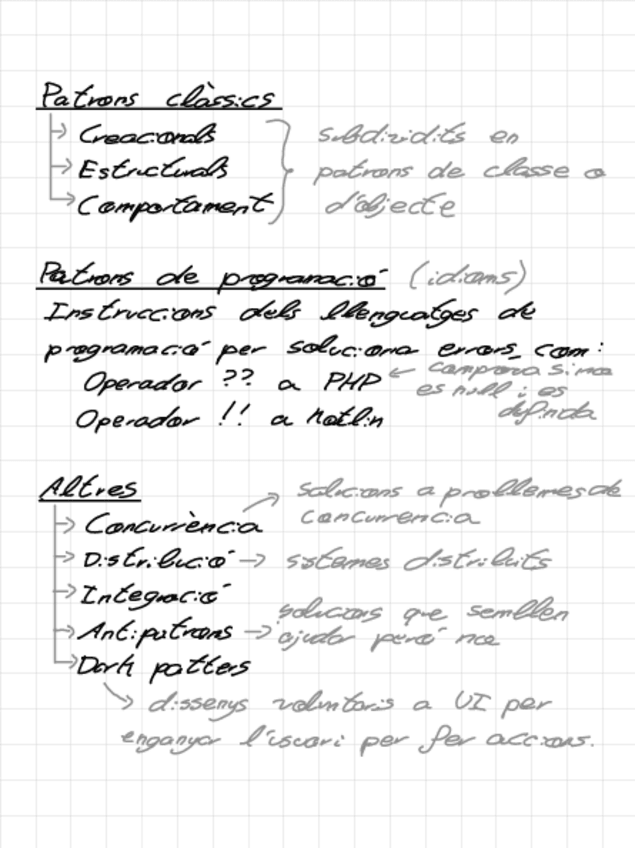 Patrons clàssics
Creacionals
Estructurals
Comportament
subdividits en
patrons de classe o
d'objecte
Patrons de programació (idioms)
Instruccions dels llenguatges de
programació per soluciona errors, com:
Operador ?? a PHP ← comprova si no
es null i es
definida
Operador !! a Kotlin
Altres
Concurrència → solucions a problemes de
concurrencia
Distribució → sistemes distribuits
Integració
Antipatrons → solucions que semblen
ajudar però no
Dark patters
→ dissenys voluntaris a UI per
enganyar l'usuari per fer accions.